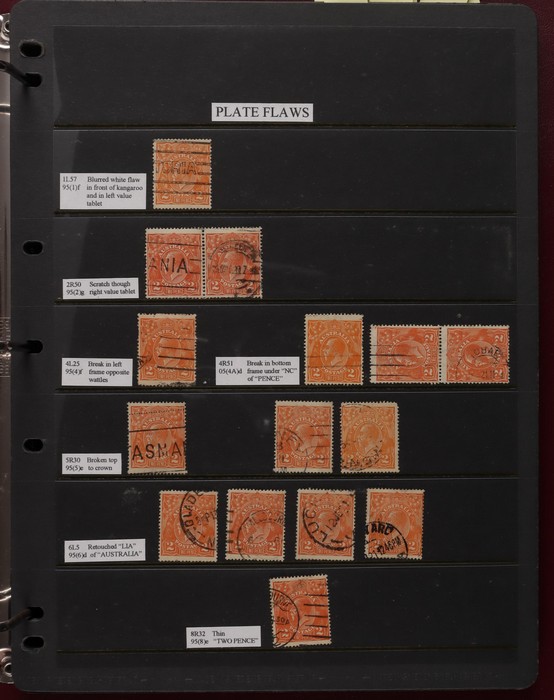 PLATE FLAWS
1L57 Blurred white flaw
95(1)f in front of kangaroo
and in left value
tablet
2R50 Scratch though
95(2)g right value tablet
NIA
4L25 Break in left
95(4)f frame opposite
wattles
4R51 Break in bottom
05(4A)d frame under "NC"
of "PENCE"
5R30 Broken top
95(5)e to crown
ASMA
6L5 Retouched "LIA"
95(6)d of "AUSTRALIA"
8R32 Thin
95(8)e "TWO PENCE"